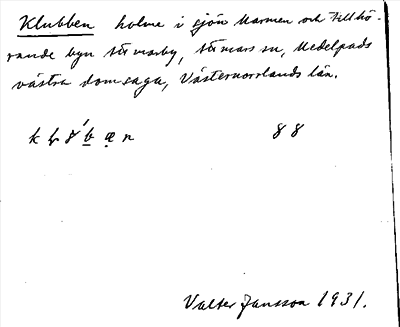 Klubben holme i sjön Marmen och tillhö-
rande byn Sörmarby, Stöde sn, Medelpads
västra domsaga, Västernorrlands län.
88
Valter Jansson 1931.